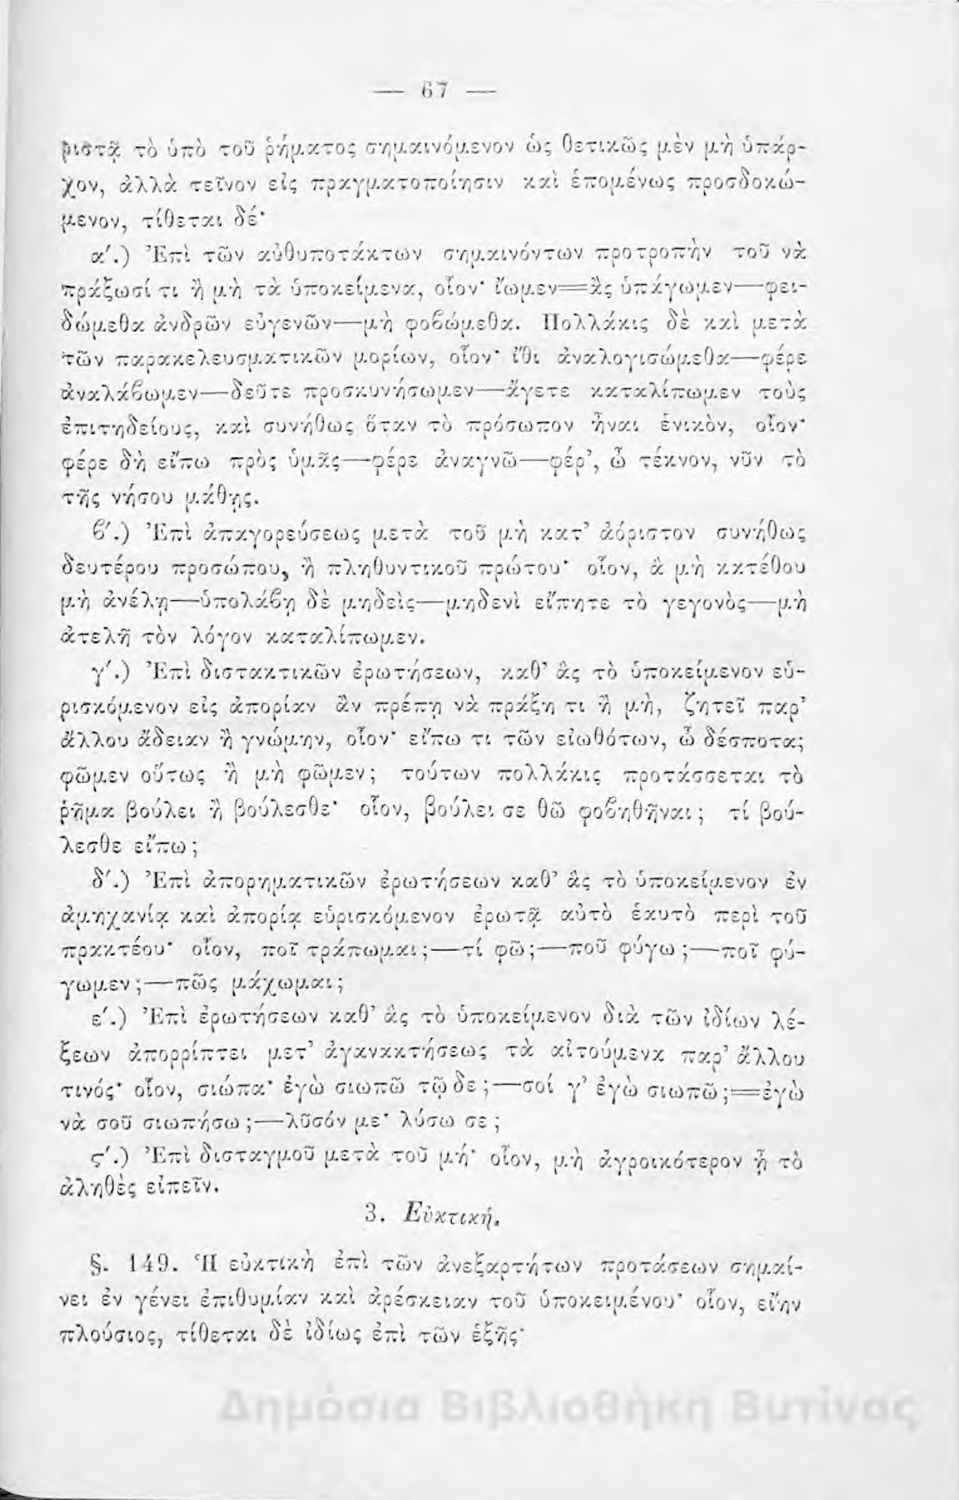 — 67 —
ριστᾷ τὸ ὑπὸ τοῦ ῥήματος σημαινόμενον ὡς θετικῶς μὲν μὴ ὑπάρ-
χον, ἀλλὰ τεῖνον εἰς πραγματοποίησιν καὶ ἑπομένως προσδοκώ-
μενον, τίθεται δέ·
α΄.) Ἐπὶ τῶν αὐθυποτάκτων σημαινόντων προτροπὴν τοῦ νὰ
πράξωσί τι ἢ μὴ τὰ ὑποκείμενα, οἷον· ἴωμεν=ἂς ὑπάγωμεν—φει-
δώμεθα ἀνδρῶν εὐγενῶν—μὴ φοβώμεθα. Πολλάκις δὲ καὶ μετὰ
τῶν παρακελευσματικῶν μορίων, οἷον· ἴθι ἀναλογισώμεθα—φέρε
ἀναλάβωμεν—δεῦτε προσκυνήσωμεν—ἄγετε καταλίπωμεν τοὺς
ἐπιτηδείους, καὶ συνήθως ὅταν τὸ πρόσωπον ἦναι ἑνικὸν, οἷον·
φέρε δὴ εἴπω πρὸς ὑμᾶς—φέρε ἀναγνῶ—φέρ’, ὦ τέκνον, νῦν τὸ
τῆς νήσου μάθῃς.
ϐ΄.) Ἐπὶ ἀπαγορεύσεως μετὰ τοῦ μὴ κατ’ ἀόριστον συνήθως
δευτέρου προσώπου, ἢ πληθυντικοῦ πρώτου· οἷον, ἃ μὴ κατέθου
μὴ ἀνέλῃ—ὑπολάβῃ δὲ μηδεὶς—μηδενὶ εἴπητε τὸ γεγονὸς—μὴ
ἀτελῆ τὸν λόγον καταλίπωμεν.
γ΄.) Ἐπὶ διστακτικῶν ἐρωτήσεων, καθ’ ἃς τὸ ὑποκείμενον εὑ-
ρισκόμενον εἰς ἀπορίαν ἂν πρέπῃ νὰ πράξῃ τι ἢ μὴ, ζητεῖ παρ’
ἄλλου ἄδειαν ἢ γνώμην, οἷον· εἴπω τι τῶν εἰωθότων, ὦ δέσποτα;
φῶμεν οὕτως ἢ μὴ φῶμεν; τούτων πολλάκις προτάσσεται τὸ
ῥῆμα βούλει ἢ βούλεσθε· οἷον, βούλει σε θῶ φοβηθῆναι; τί βού-
λεσθε εἴπω;
δ΄.) Ἐπὶ ἀπορηματικῶν ἐρωτήσεων καθ’ ἃς τὸ ὑποκείμενον ἐν
ἀμηχανίᾳ καὶ ἀπορίᾳ εὑρισκόμενον ἐρωτᾷ αὐτὸ ἑαυτὸ περὶ τοῦ
πρακτέου· οἷον, ποῖ τράπωμαι;—τί φῶ;—ποῦ φύγω;—ποῖ φύ-
γωμεν;—πῶς μάχωμαι;
ε΄.) Ἐπὶ ἐρωτήσεων καθ’ ἃς τὸ ὑποκείμενον διὰ τῶν ἰδίων λέ-
ξεων ἀπορρίπτει μετ’ ἀγανακτήσεως τὰ αἰτούμενα παρ’ ἄλλου
τινός· οἷον, σιώπα· ἐγὼ σιωπῶ τῷδε;—σοί γ’ ἐγὼ σιωπῶ;=ἐγὼ
νὰ σοῦ σιωπήσω;—λῦσόν με· λύσω σε;
ς΄.) Ἐπὶ δισταγμοῦ μετὰ τοῦ μή· οἷον, μὴ ἀγροικότερον ᾖ τὸ
ἀληθὲς εἰπεῖν.
3. Εὐκτική.
§. 149. Ἡ εὐκτικὴ ἐπὶ τῶν ἀνεξαρτήτων προτάσεων σημαί-
νει ἐν γένει ἐπιθυμίαν καὶ ἀρέσκειαν τοῦ ὑποκειμένου· οἷον, εἴην
πλούσιος, τίθεται δὲ ἰδίως ἐπὶ τῶν ἑξῆς·
Δημόσια Βιβλιοθήκη Βυτίνας